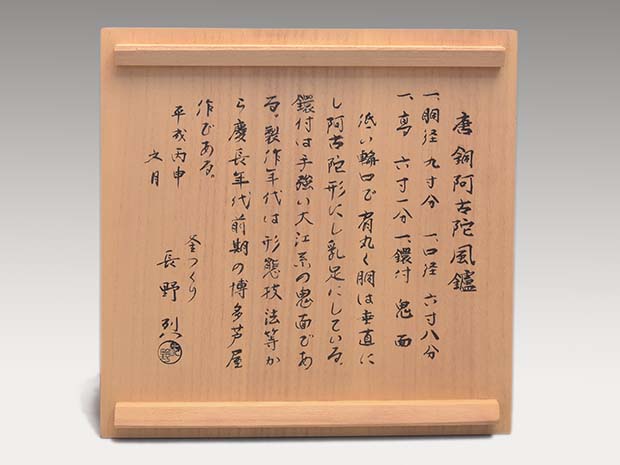 唐銅阿古陀風鑪
一、胴径 九寸分 一、口径 六寸八分
一、高 六寸一分 一、鐶付 鬼面
低い輪口で肩丸く胴は垂直に
し阿古陀形にし乳足にしている。
鐶付は手強い大江系の鬼面であ
る。製作年代は形態技法等か
ら慶長年代前期の博多芦屋
作である。
平成丙申
文月
釜つくり
長野 烈